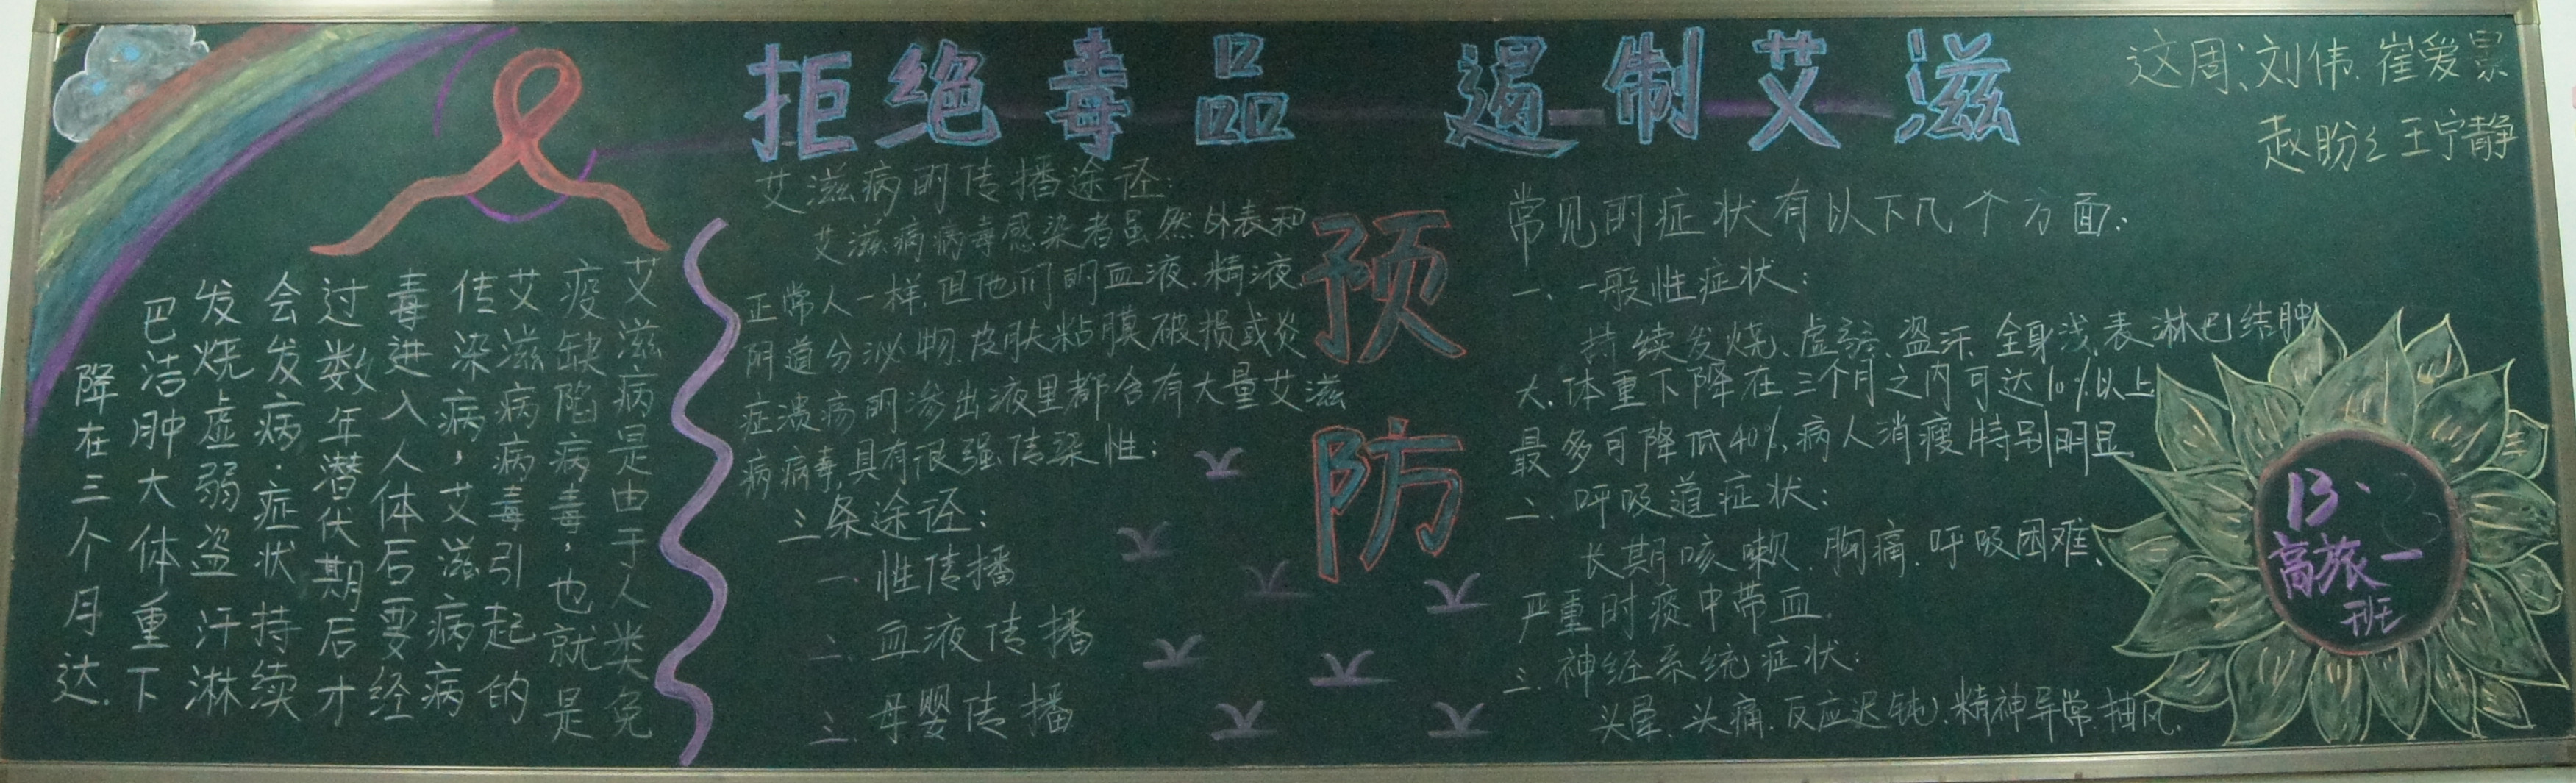 拒绝毒品 遏制艾滋
这周:刘伟、崔爱景
赵盼盼 王宁静
艾滋病是由于人类免
疫缺陷病毒,也就是
艾滋病病毒引起的
传染病,艾滋病病
毒进入人体后要经
过数年潜伏期后才
会发病.症状持续
发烧虚弱盗汗淋
巴洁肿大体重下
降在三个月达.
艾滋病的传播途径:
艾滋病病毒感染者虽然外表和
正常人一样,但他们的血液、精液、
阴道分泌物、皮肤粘膜破损或炎
症溃疡的渗出液里都含有大量艾滋
病病毒,具有很强传染性;
三条途径:
一、性传播
二、血液传播
三、母婴传播
预防
常见的症状有以下几个方面:
一、一般性症状:
持续发烧、虚弱、盗汗、全身浅表淋巴结肿
大.体重下降在三个月之内可达10%以上
最多可降低40%,病人消瘦特别明显
二、呼吸道症状:
长期咳嗽、胸痛、呼吸困难、
严重时痰中带血.
三、神经系统症状:
头晕、头痛、反应迟钝、精神异常、抽风.
13.
高旅一
班